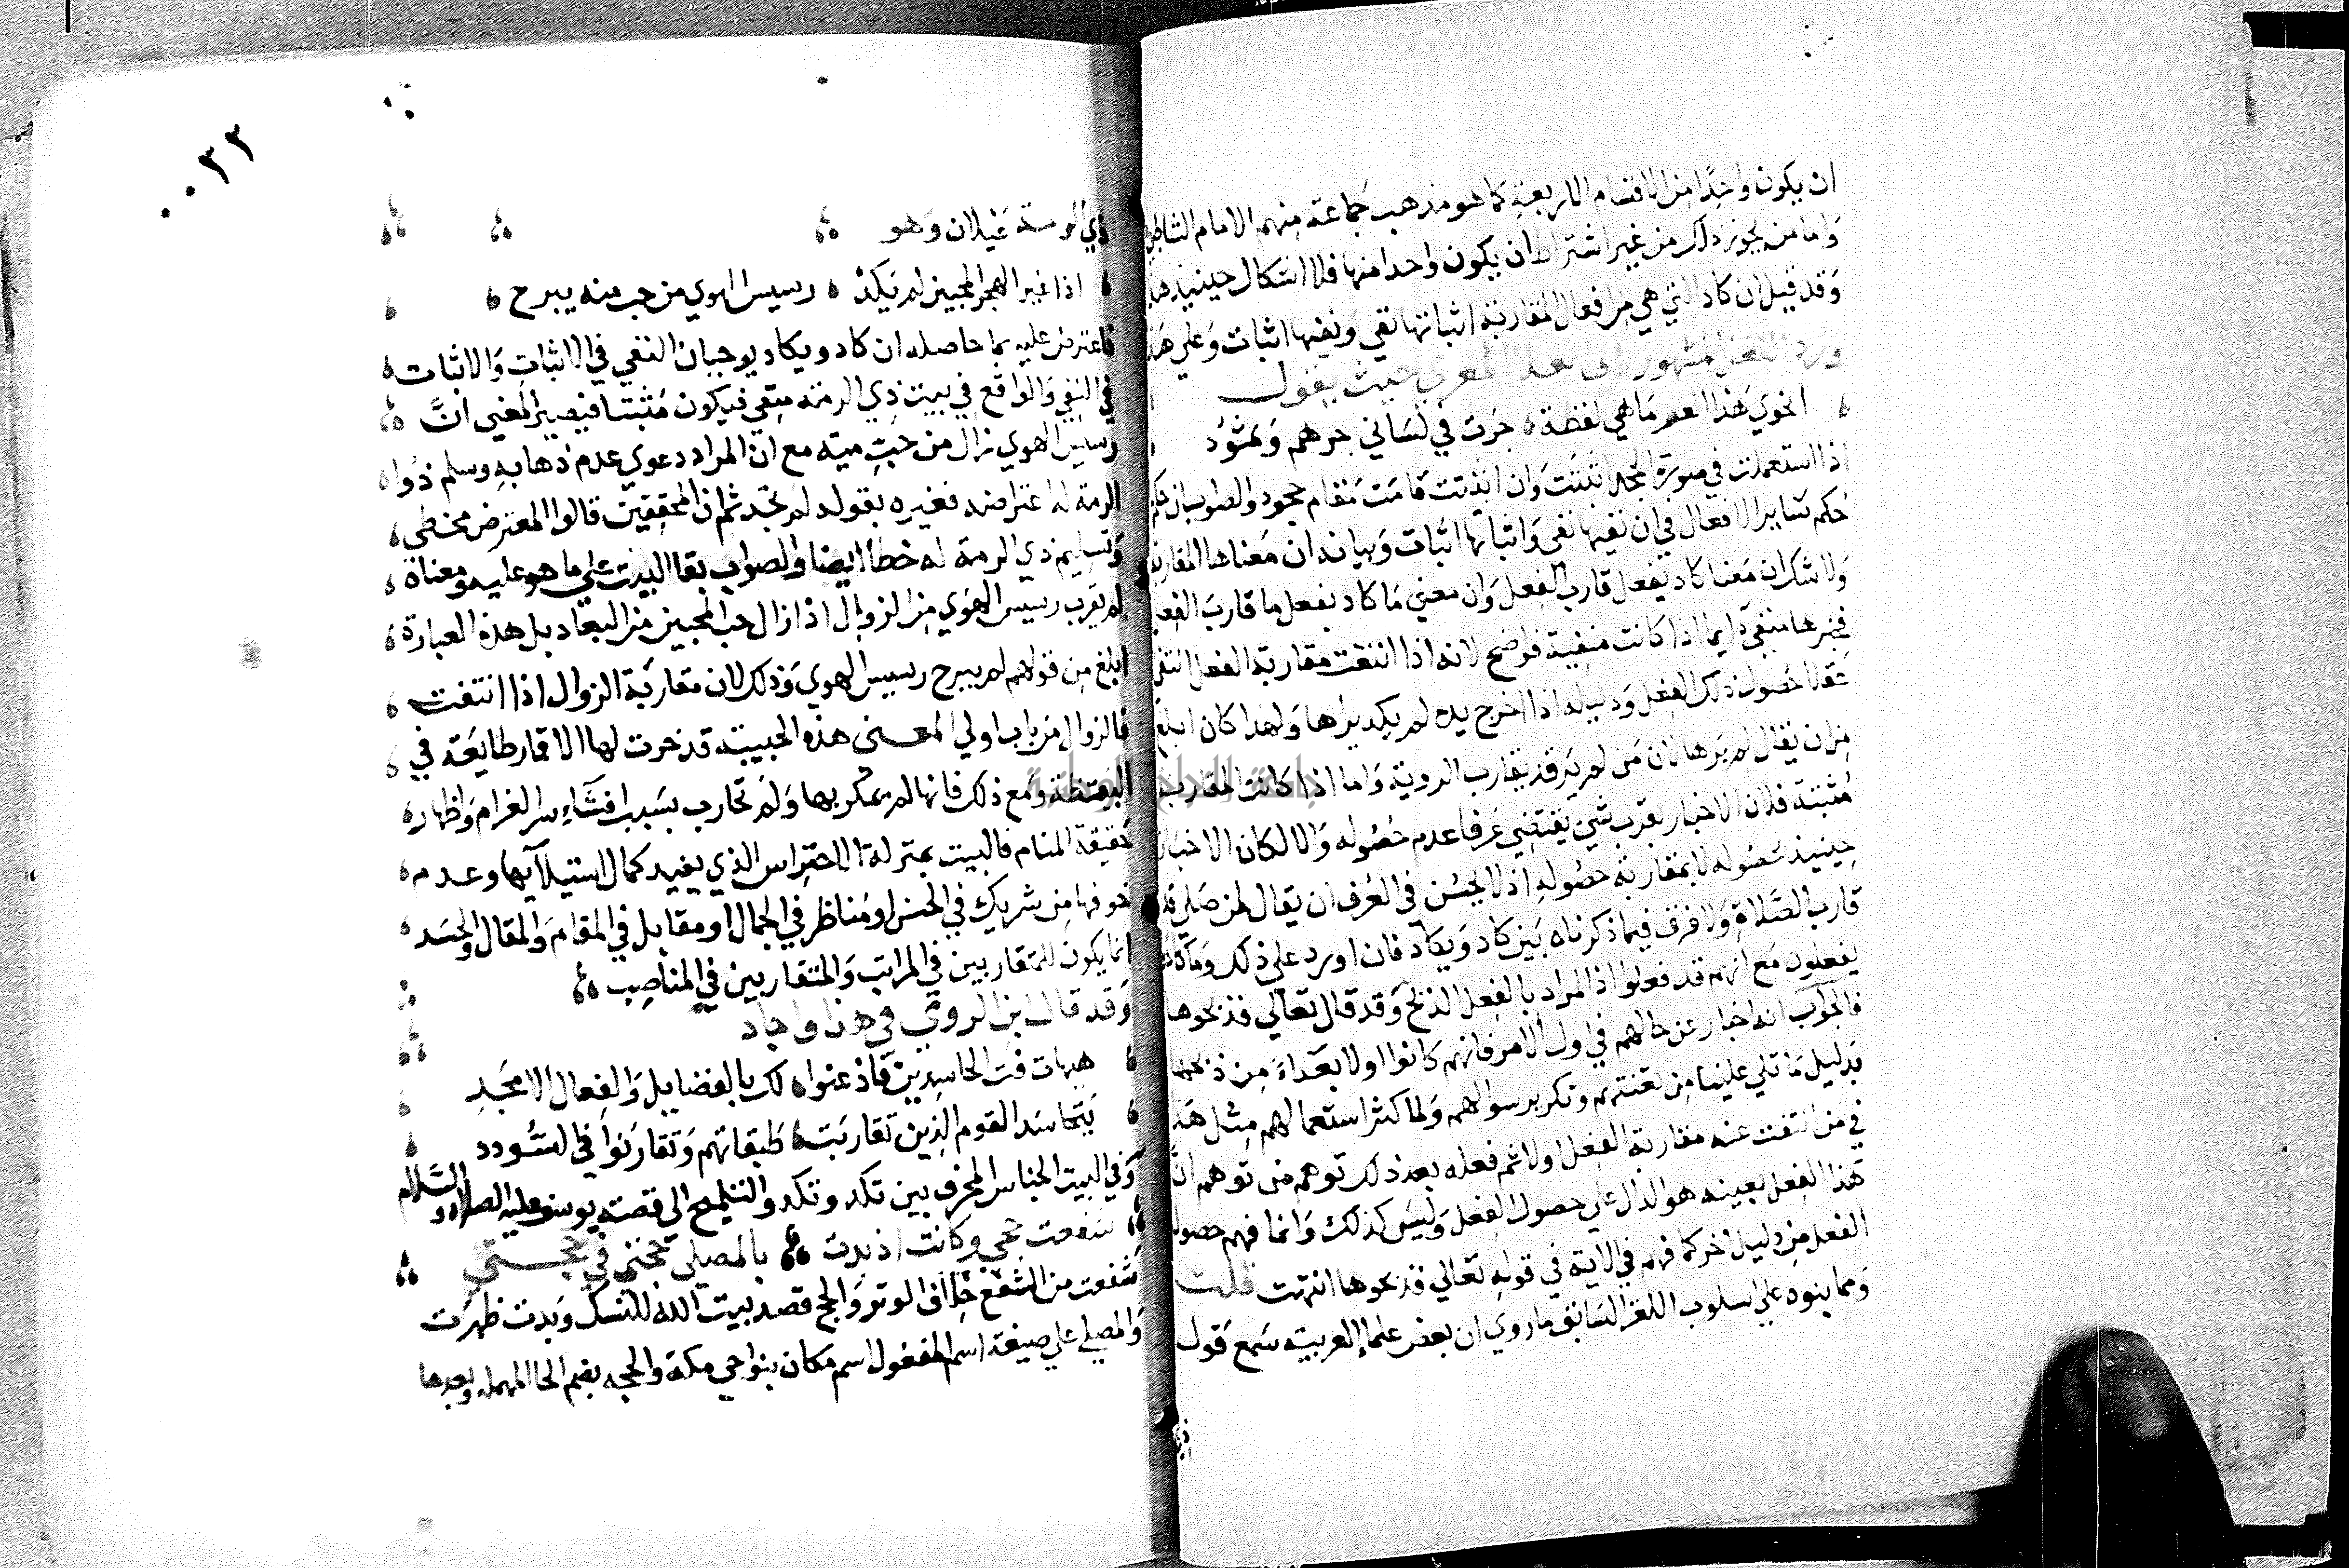 ان يكون واحدًا من الاقسام الاربعة كما هو مذهب جماعة منهم الامام الشاطبي
واما من يجوز ذلك من غير اشتراط ان يكون واحدا منها فلا اشكال حينيذ
وقد قيل ان كاد التي هي من افعال المقاربة اثباتها نفي ونفيها اثبات وعلي هذا
ورد اللغز المشهور المعري حيث يقول
انحوي هذا العصر ما هي لفظة ، جرت في لساني جرهم وثمود
اذا استعملت في صورة الجحد اثبتت وان اثبتت قامت مقام جحود والصواب ان حكم
حكم ساير الافعال في ان نفيها نفي واثباتها اثبات وبيانه ان معناها المقاربة
ولا شك ان معنا كاد يفعل قارب الفعل وان معني ما كاد يفعل ما قارب الفعل
فخبرها منفي دايما اذا كانت منفية فواضح لانه اذا انتفت مقاربة الفعل انتفي
عقلا حصول ذلك الفعل ودليله اذا اخرج يده لم يكد يراها ولهذا كان ابلغ
من ان يقال لم يرها لان من لم ير قد يقارب الروية واما اذا كانت المقاربة
مثبتة فلان الاخبار بقرب شي يقتضي عرفا عدم حصوله والا لكان الاخبار
حينيذ بحصوله لا بمقاربة حصوله اذ لا يحسن في العرف ان يقال لمن صلي قد
قارب الصلاة ولا فرق فيما ذكرناه بين كاد ويكاد فان اورد علي ذلك وما كادوا
يفعلون مع انهم قد فعلوا اذ المراد بالفعل الذبح وقد قال تعالي فذبحوها
فالجواب انه اخبار عن حالهم في اول الامر فانهم كانوا اولا بعداء من ذبحها
بدليل ما تلي علينا من تعنتهم وتكرير سوالهم ولما كثر استعمالهم مثل هذا
في من انتفت عنه مقاربة الفعل اولا ثم فعله بعد ذلك توهم من توهم ان
هذا الفعل بعينه هو الدال علي حصول الفعل وليس كذلك وانما فهم حصول
الفعل من دليل اخر كما فهم في الاية في قوله تعالي فذبحوها انتهت قلت
ومما بنوه علي اسلوب اللغز السابق ما روي ان بعض علماء العربيه سمع قول
ذي
٠٠٣٣
ذي الرمة غيلان وهو
اذا غير الهجر المحبين لم يكد ، رسيس الهوي من حب مية يبرح
فاعترض عليه بما حاصله ان كاد ويكاد يوجبان النفي في الاثبات والاثبات
في النفي والواقع في بيت ذي الرمة منفي فيكون مثبتا فيصير المعني ان
رسيس الهوي زال من حب مية مع ان المراد دعوي عدم ذهابه وسلم ذوا
الرمة له اعتراضه فغيره بقوله لم نجد ثم ان المحققين قالوا المعترض مخطي
وتسليم ذي الرمة له خطأ ايضا والصواب بقا البيت علي ما هو عليه ومعناه
لم يقرب رسيس الهوي من الزوال اذا زال حب المحبين من البعاد بل هذه العبارة
ابلغ من قولهم لم يبرح رسيس الهوي وذلك لان مقاربة الزوال اذا انتفت
فالزوال من باب اولي المعنى هذه الحبيبة قد خرت لها الاقمار طايعة في
اليقظة ومع ذلك فانها لم يمكر بها ولم تحارب بسبب افشاء سر الغرام واظهار
حقيقة المنام فالبيت بمنزلة الاحتراس الذي يفيد كمال استيلايها وعدم
خوفها من شريك في الحسن او مناظر في الجمال او مقابل في المقام والمقال والحسد
انما يكون للمتقاربين في المراتب والمتقاربين في المناصب
وقد قال ابن الرومي في هذا واجاد
هيهات فت الحاسدين فاذعنوا ، لك بالفضايل والفعال الامجد
يتحاسد القوم الذين تقاربت ، طبقاتهم وتقارنوا في السودد
وفي البيت الجناس المحرف بين تكد وتكد والتلميح الي قصة يوسف عليه الصلاة والسلام
شفعت حجي وكانت اذ بدت بالمصلى حجتي في حجتي
شفعت من الشفع خلاف الوتر والحج قصد بيت الله للنسك وبدت ظهرت
والمصلي علي صيغة اسم المفعول اسم مكان بنواحي مكة والحجه بضم الحا المهملة وبعدها